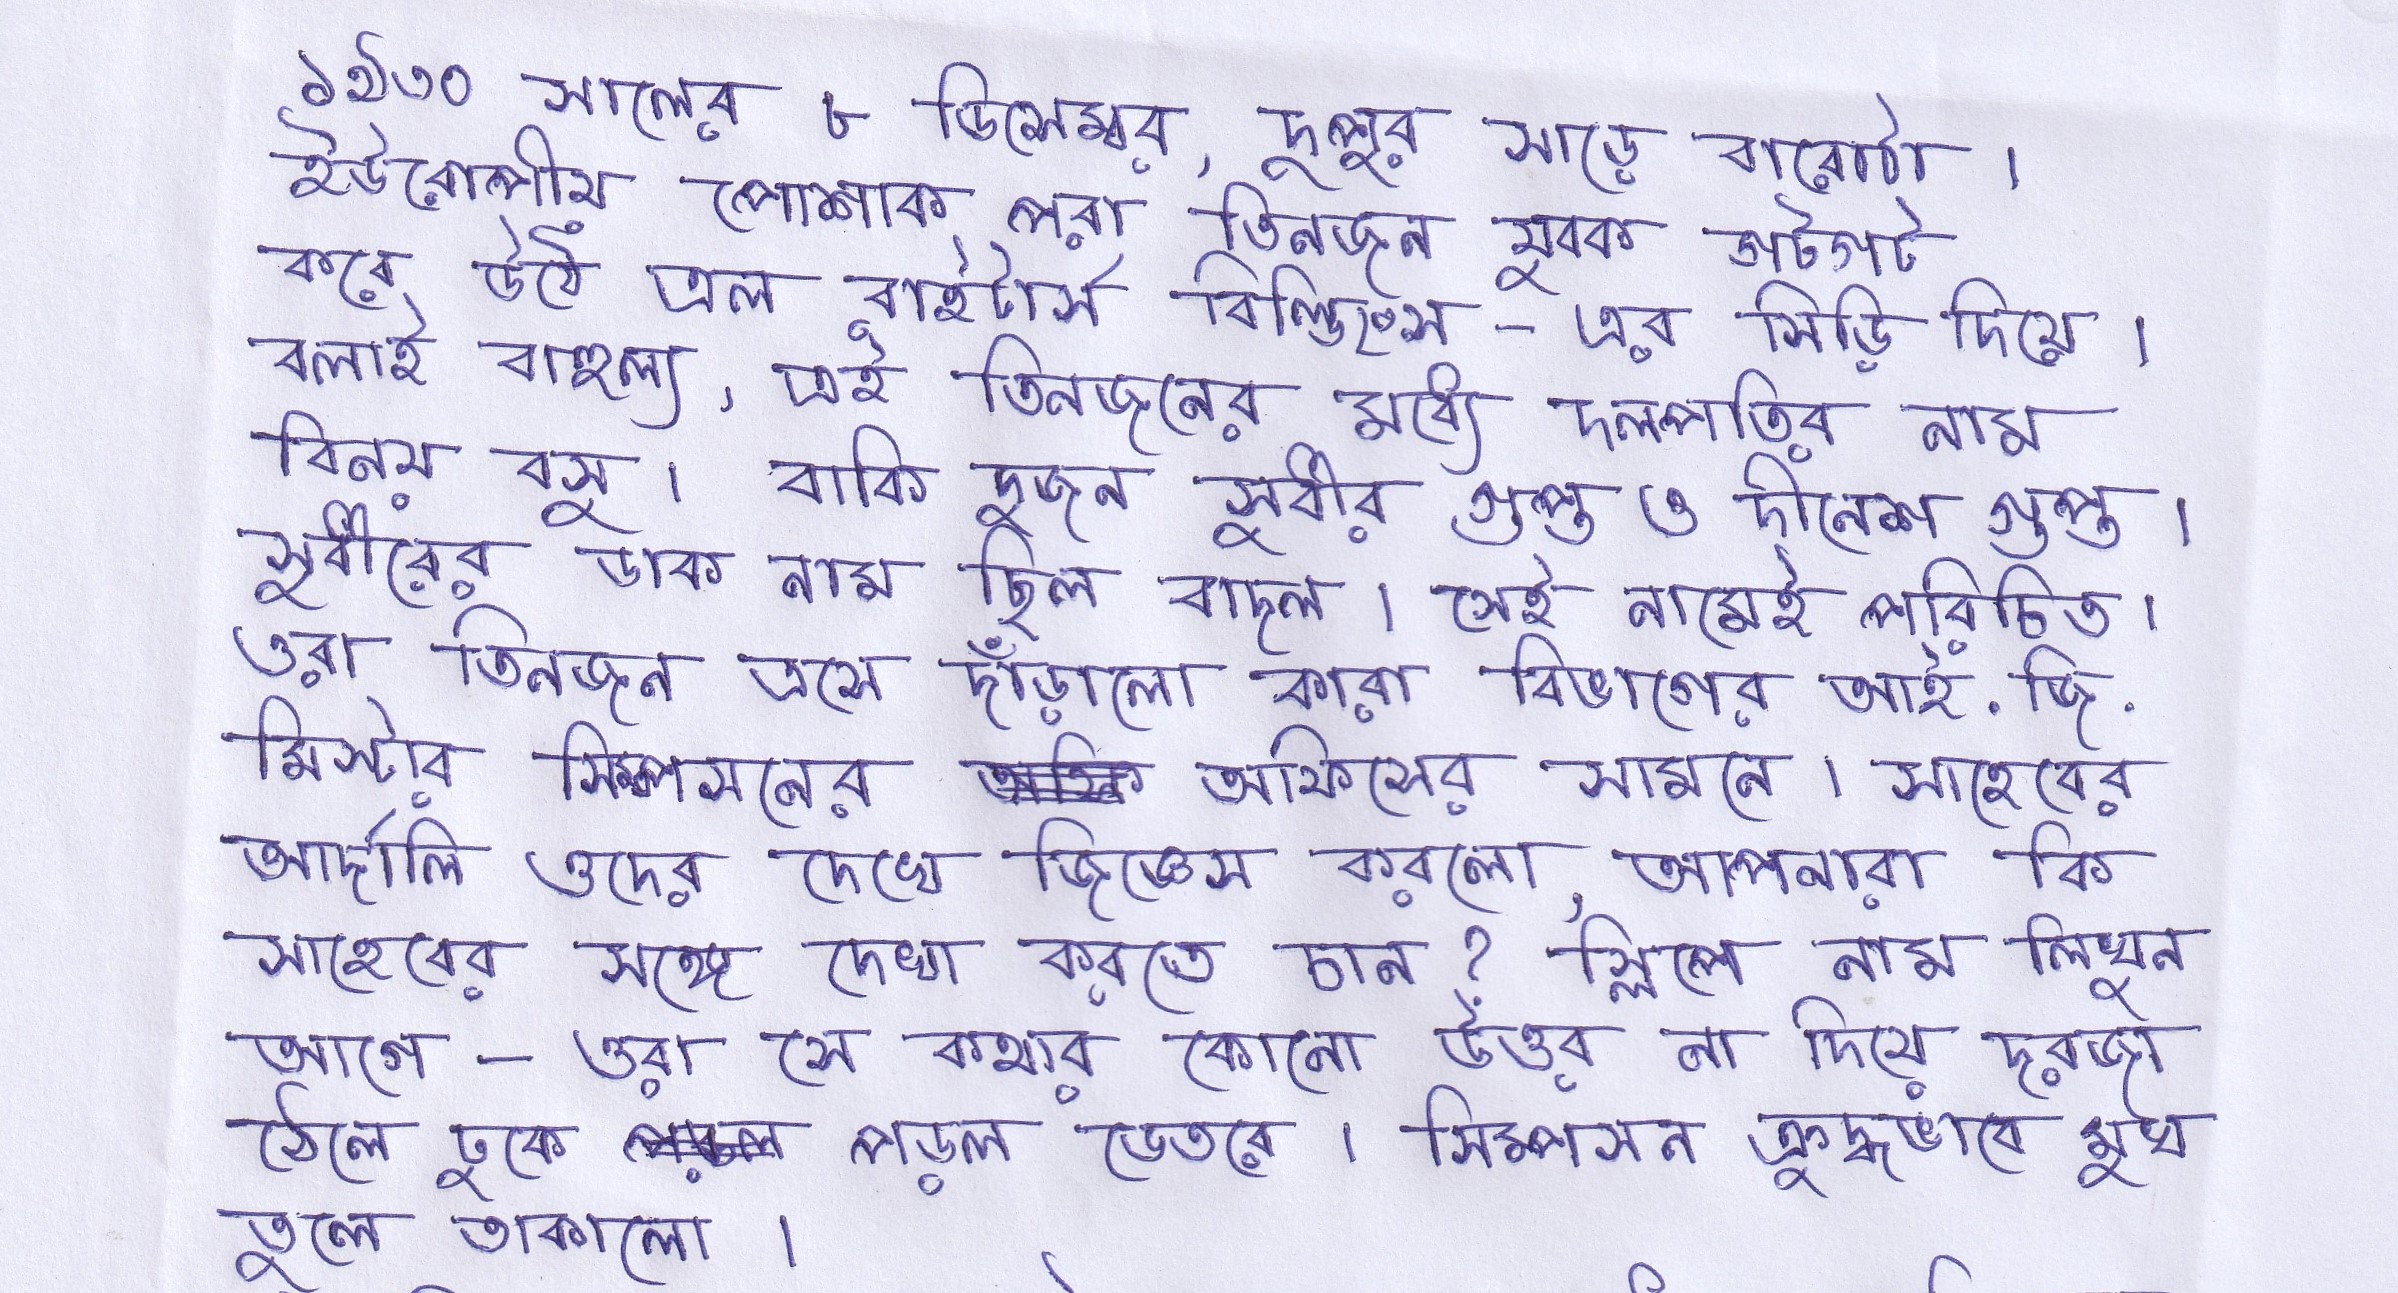 ১৯৩০ সালের ৮ ডিসেম্বর, দুপুর সাড়ে বারোটা।
ইউরোপীয় পোশাক পরা তিনজন যুবক গটগট
করে উঠে এল রাইটার্স বিল্ডিংস - এর সিড়ি দিয়ে।
বলাই বাহুল্য, এই তিনজনের মধ্যে দলপতির নাম
বিনয় বসু। বাকি দুজন সুবীর গুপ্ত ও দীনেশ গুপ্ত।
সুবীরের ডাক নাম ছিল বাদল। সেই নামেই পরিচিত।
ওরা তিনজন এসে দাঁড়ালো কারা বিভাগের আই. জি.
মিস্টার সিম্পসনের অফিসের সামনে। সাহেবের
আর্দালি ওদের দেখে জিজ্ঞেস করলো, আপনারা কি
সাহেবের সঙ্গে দেখা করতে চান? স্লিপে নাম লিখুন
আগে - ওরা সে কথার কোনো উত্তর না দিয়ে দরজা
ঠেলে ঢুকে পড়ল ভেতরে। সিম্পসন ক্রুদ্ধভাবে মুখ
তুলে তাকালো।